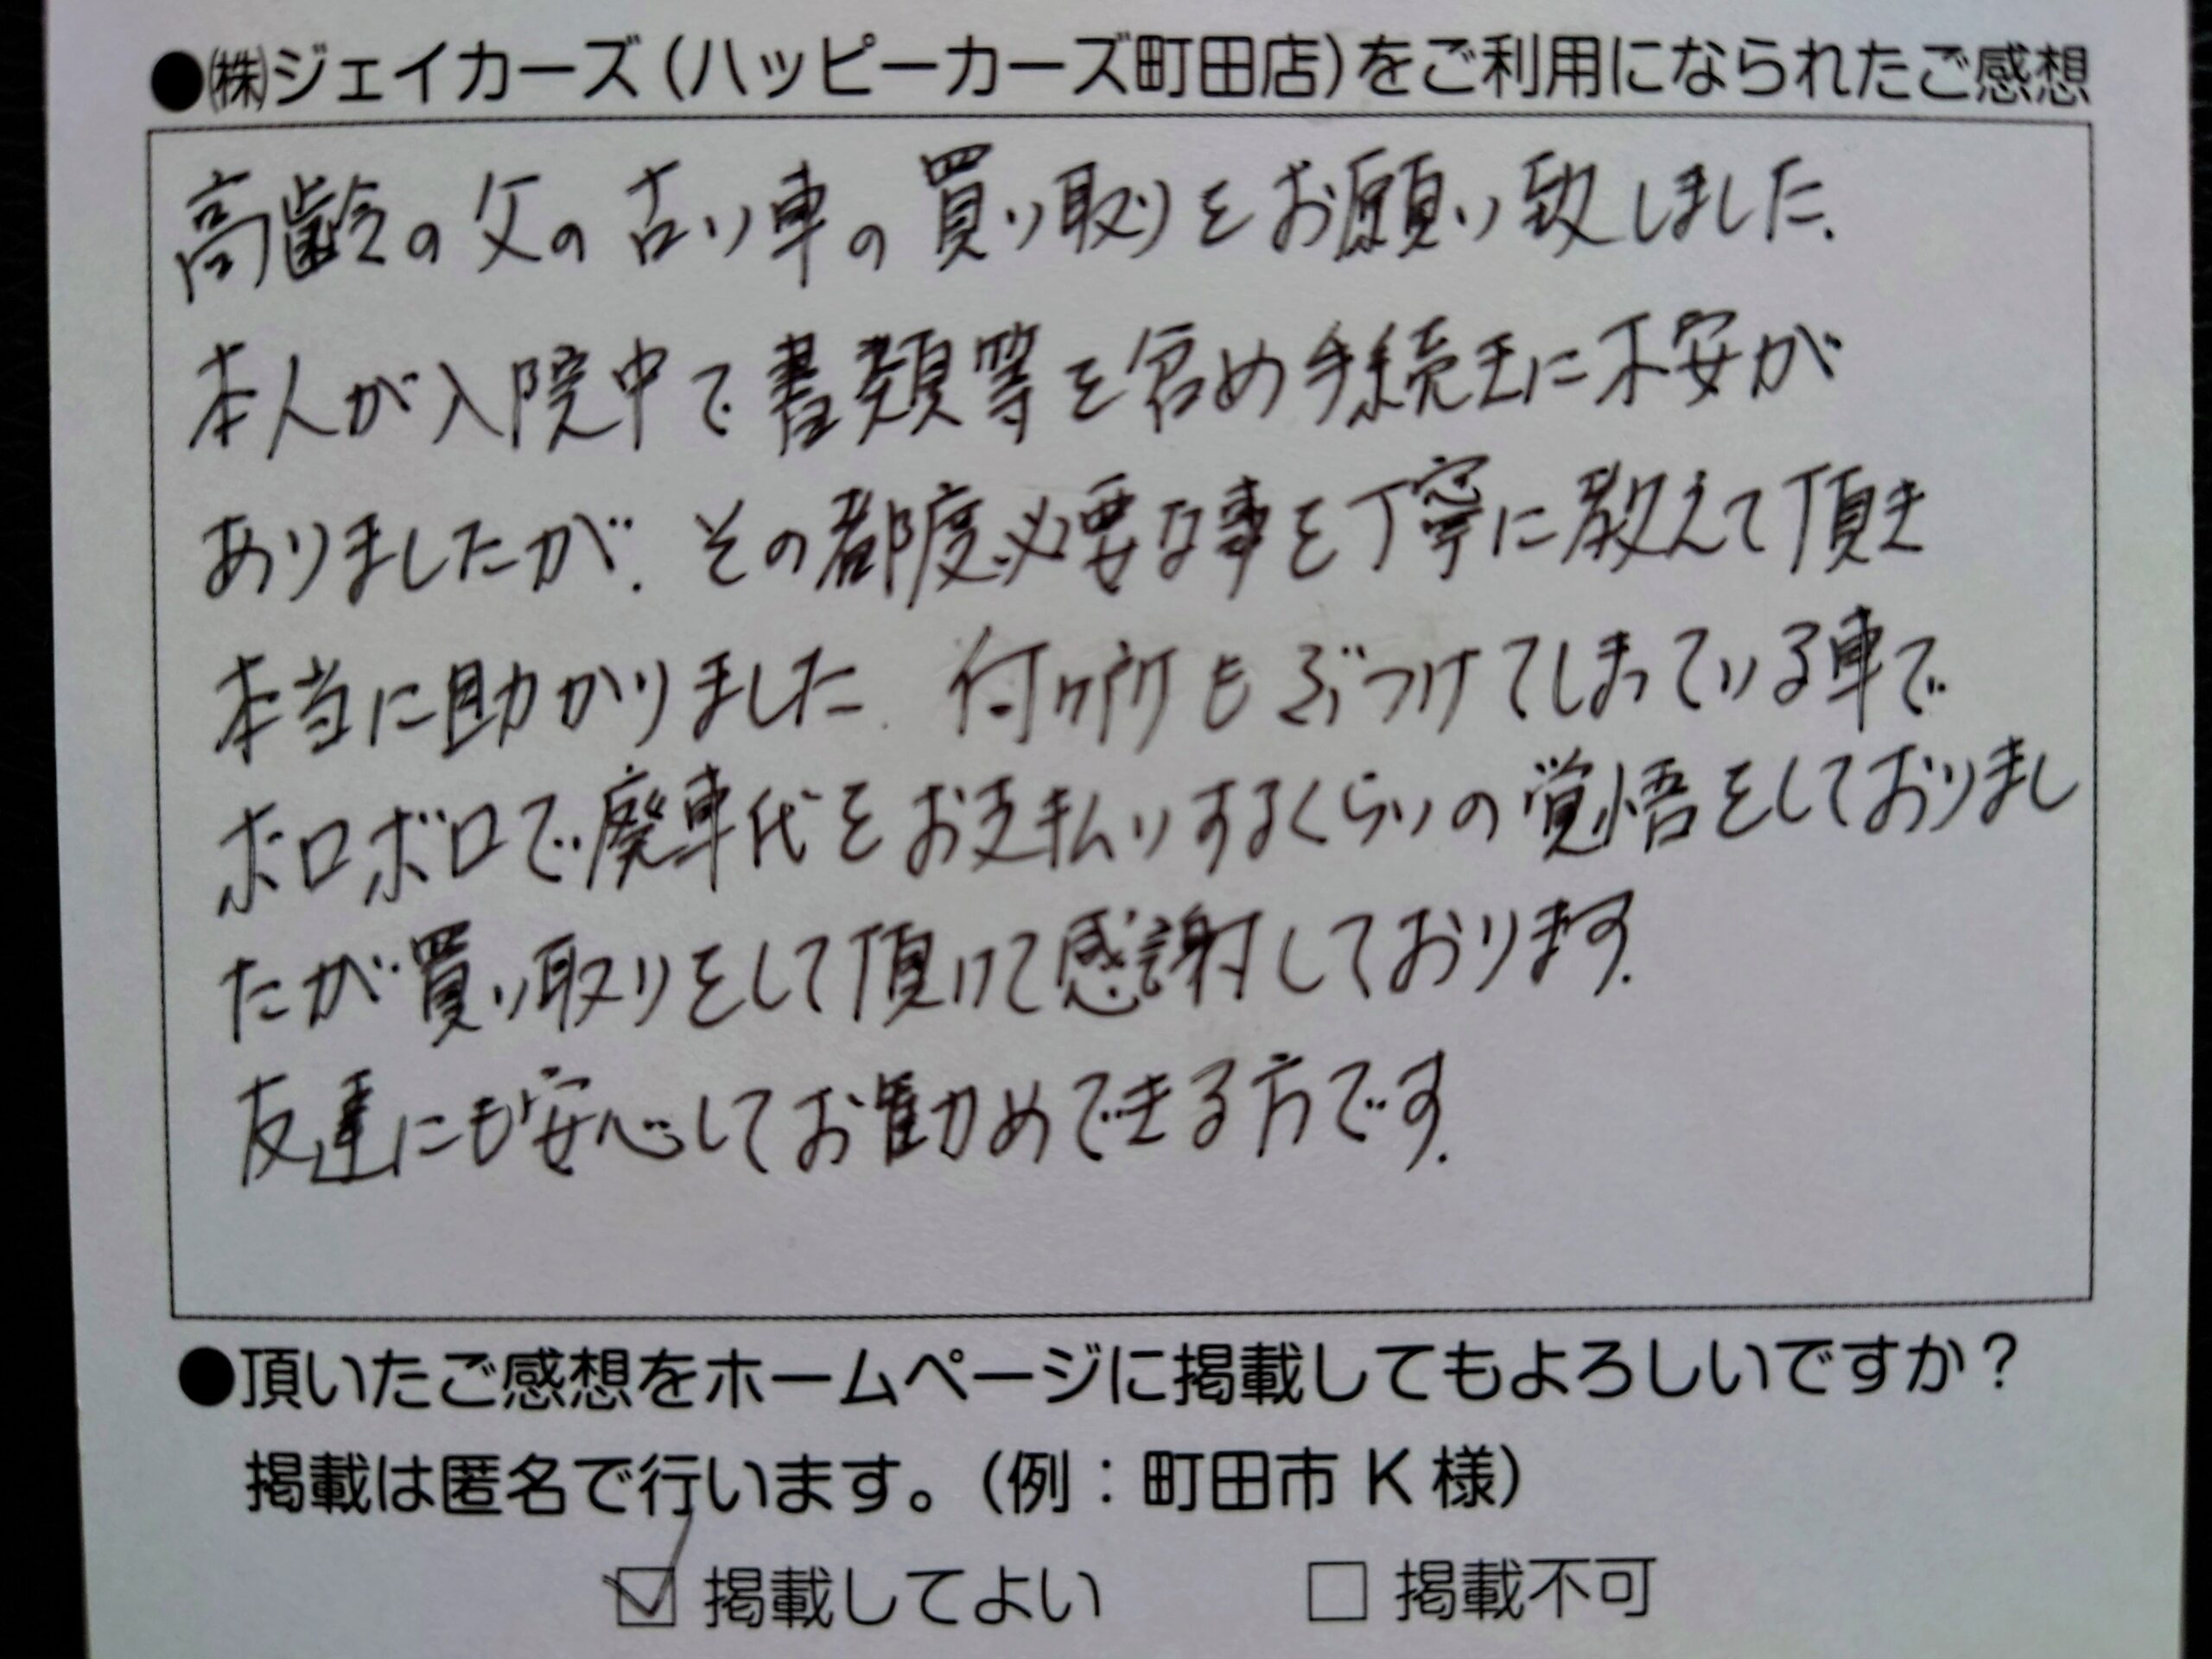 ●㈱ジェイカーズ（ハッピーカーズ町田店）をご利用になられたご感想
高齢の父の古い車の買い取りをお願い致しました.
本人が入院中で書類等を含め手続きに不安が
ありましたが. その都度必要な事を丁寧に教えて頂き
本当に助かりました. 何ヶ所もぶつけてしまっている車で
ボロボロで廃車代をお支払いするくらいの覚悟をしておりまし
たが買い取りをして頂けて感謝しております.
友達にも安心してお勧めできる方です.
●頂いたご感想をホームページに掲載してもよろしいですか？
掲載は匿名で行います。（例：町田市 K 様）
☑ 掲載してよい □ 掲載不可